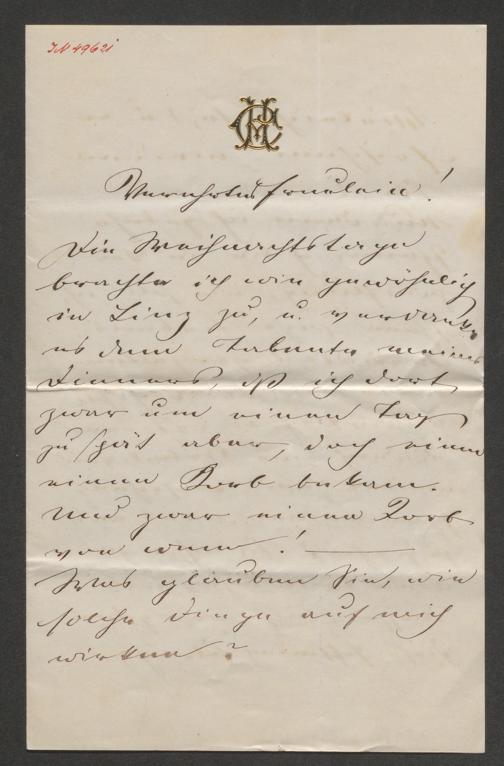 JN 49621
Verehrtes Fräulein!
Die Weihnachtstage
brachte ich wie gewöhnlich
in Linz zu, u. verdanke
es dem Talente meines
Dieners, daß ich dort
zwar um einen Tag
zu spät aber, doch einen
einen Korb bekam.
Und zwar einen Korb
von wem! —
Was glauben Sie, wie
solche Dinge auf mich
wirken?